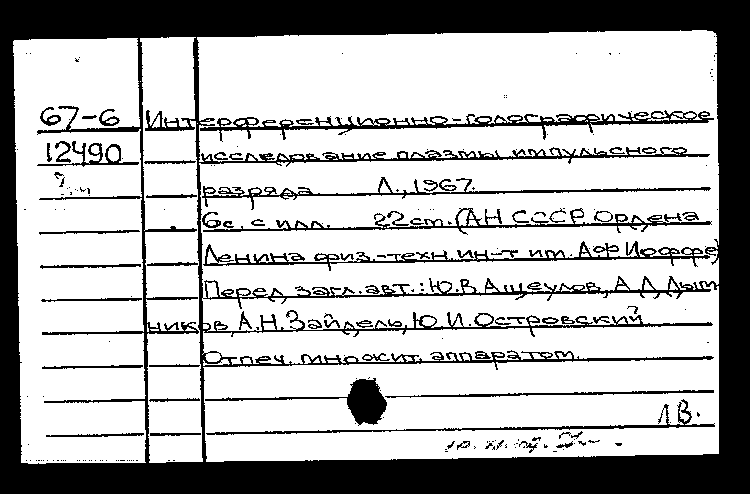 67-6 Интерференционно-голографическое
12490 исследование плазмы импульсного
разряда Л., 1967.
6с. с илл. 22 cm. (АН СССР Ордена
Ленина физ.-техн. ин-т им. А.Ф. Иоффе)
Перед загл. авт.: Ю.В. Ащеулов, А.Д. Дым-
ников, А.Н. Зайдель, Ю.И. Островский
Отпеч. множит. аппаратом.
1В.